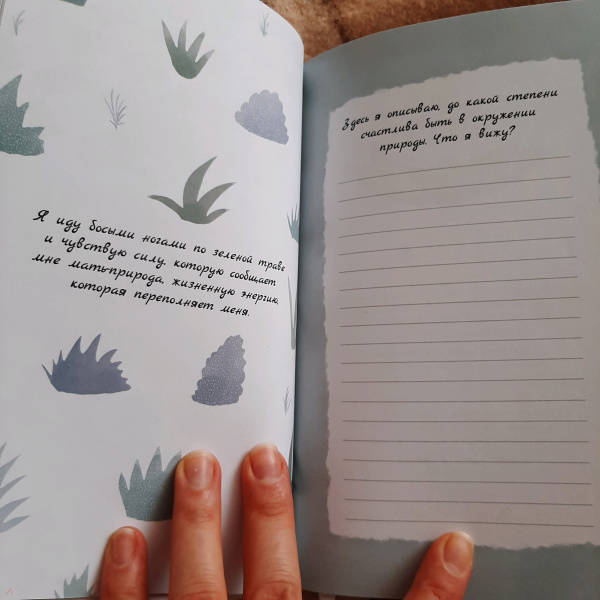 Я иду босыми ногами по зеленой траве
и чувствую силу, которую сообщает
мне мать-природа, жизненную энергию,
которая переполняет меня.
Здесь я описываю, до какой степени
счастлива быть в окружении
природы. Что я вижу?